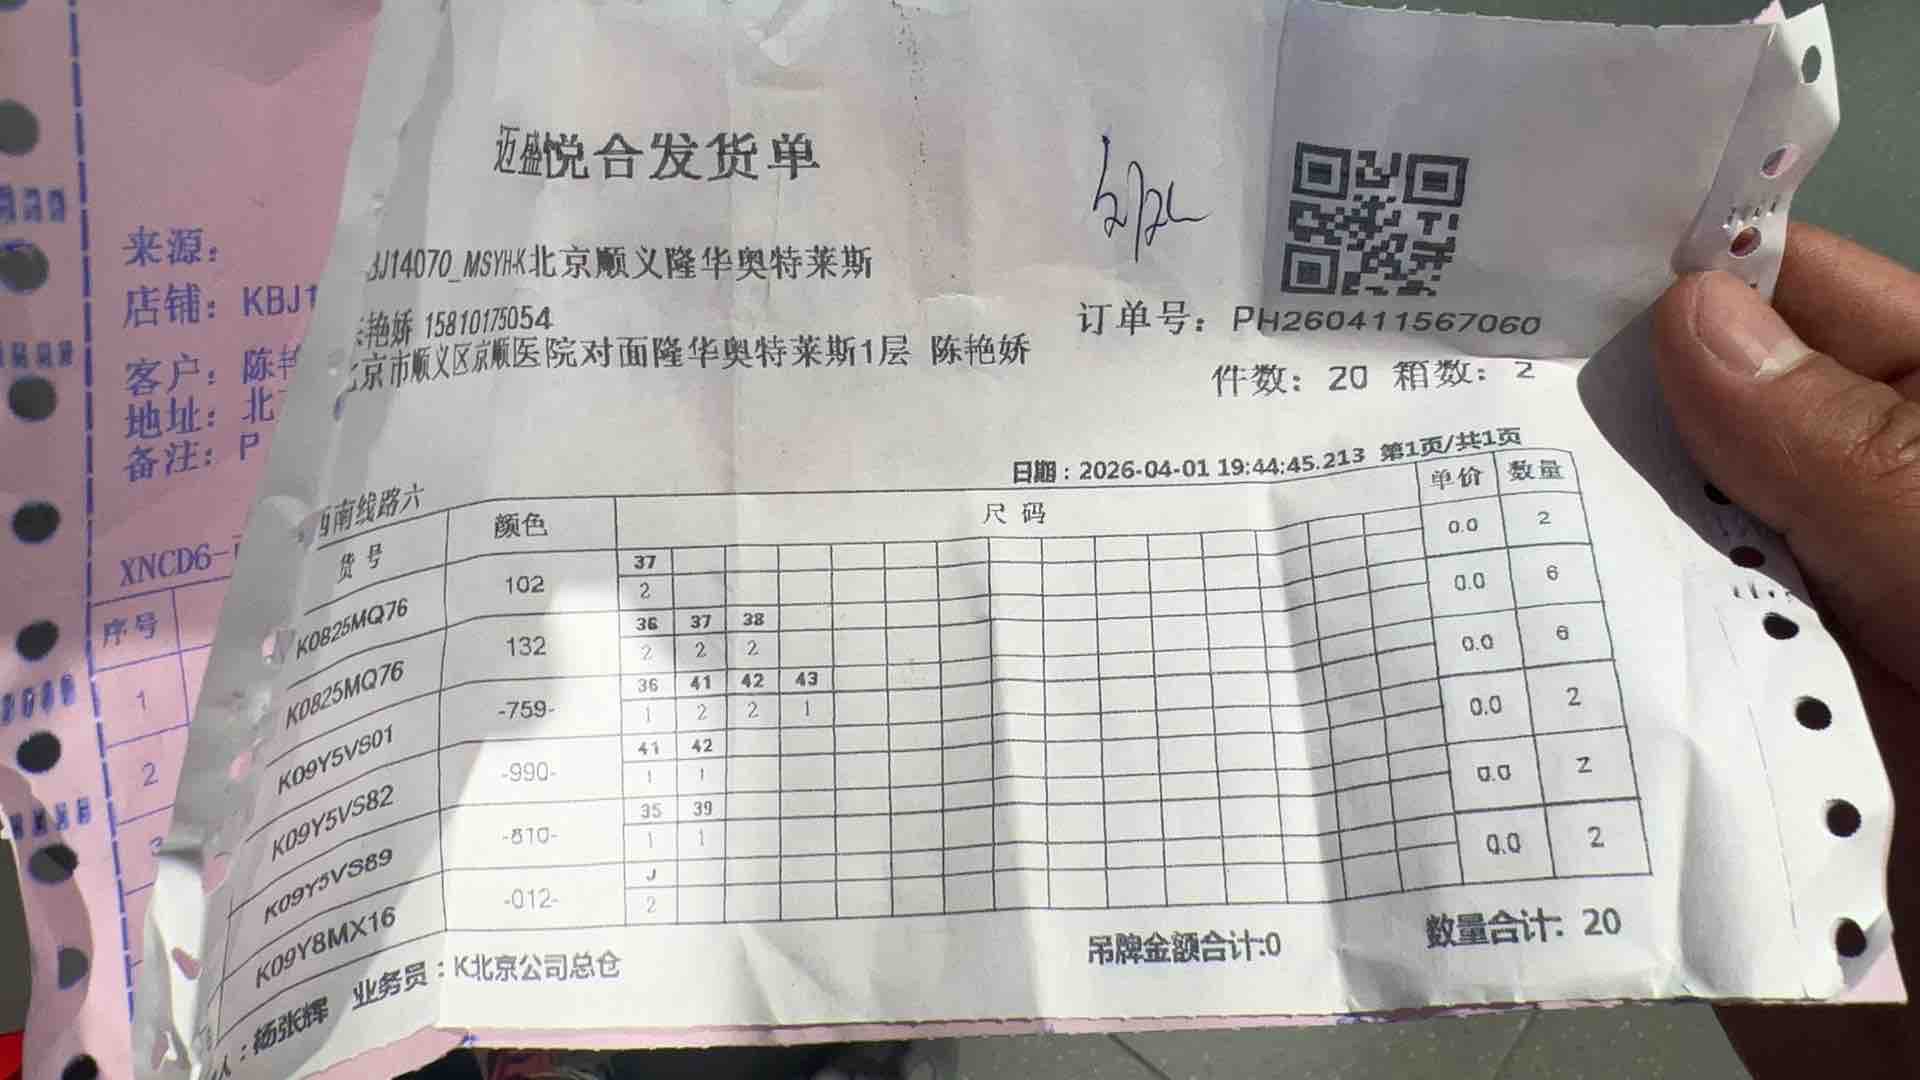 迈盛悦合发货单
BJ14070_MSYH-K北京顺义隆华奥特莱斯
艳娇 15810175054
京市顺义区京顺医院对面隆华奥特莱斯1层 陈艳娇
订单号: PH260411567060
件数: 20 箱数: 2
日期: 2026-04-01 19:44:45.213 第1页/共1页
南线路六
货号 颜色 尺码 单价 数量
K0825MQ76 102 37 0.0 2
2
K0825MQ76 132 36 37 38 0.0 6
2 2 2
K09Y5VS01 -759- 36 41 42 43 0.0 6
1 2 2 1
K09Y5VS82 -990- 41 42 0.0 2
1 1
K09Y5VS89 -810- 35 39 0.0 2
1 1
K09Y8MX16 -012- J 0.0 2
2
吊牌金额合计:0
数量合计: 20
人: 杨张辉 业务员: K北京公司总仓
来源:
店铺: KBJ1
客户: 陈艳
地址: 北
备注: P
XNCD6-
序号
1
2
3